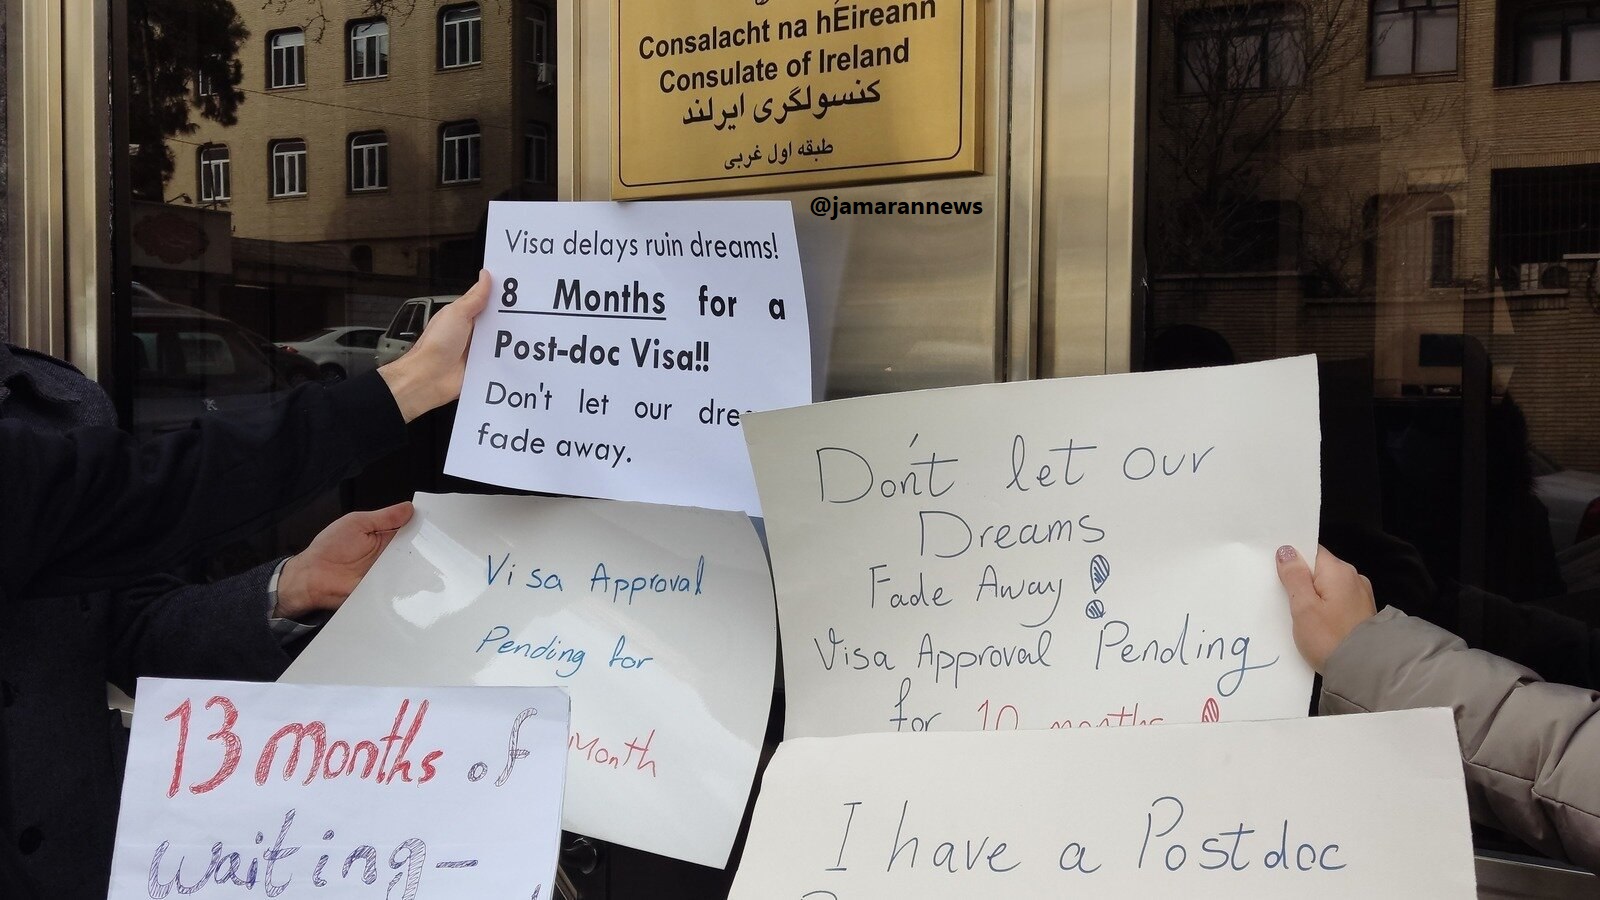 Consalacht na hÉireann
Consulate of Ireland
کنسولگری ایرلند
طبقه اول غربی
@jamarannews
Visa delays ruin dreams!
8 Months for a
Post-doc Visa!!
Don't let our
fade away.
Don't let our
Dreams
Fade Away!
Visa Approval Pending
for 10 months!
Visa Approval
Pending for
Month
13 months of
waiting-
I have a Postdoc